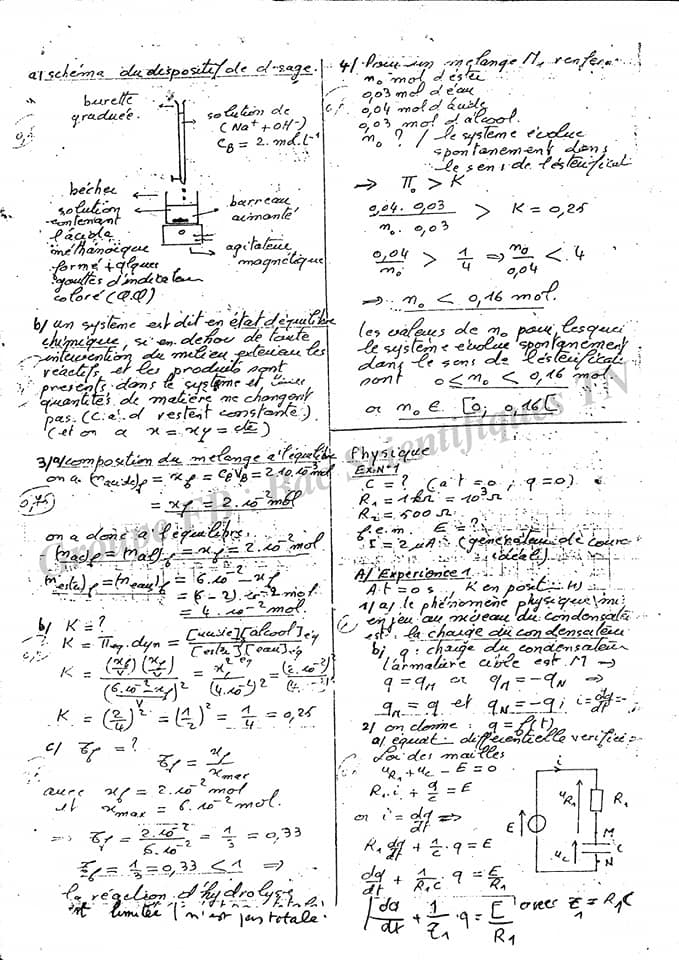 a) schéma du dispositif de dosage.
burette
graduée.
solution de
(Na⁺ + OH⁻)
C_B = 2. mol.L⁻¹
bécher
solution
contenant
l'acide
méthanoïque
formé + qlques
gouttes d'indicateur
coloré (Q.Q)
barreau
aimanté
agitateur
magnétique
b) un système est dit en état d'équilibre
chimique, si en dehors de toute
intervention du milieu extérieur les
réactifs, et les produits sont
présents dans le système et
quantités de matière ne changent
pas. (c.a.d restent constante)
(et on a x = xf = cte)
3/a/ composition du mélange à l'équilibre
on a (n acide)f = xf = C_B V_B = 2.10.10⁻³ mol
0,75
= xf = 2.10⁻² mol
on a donc à l'équilibre :
(nac)f = (nal)f = xf = 2.10⁻² mol
(n ester)f = (n eau)f = 6.10⁻² - xf
= (6 - 2).10⁻² mol
= 4.10⁻² mol.
b/ K = ?
K = Πeq.dyn = [acide][alcool]éq / [ester][eau]éq
K = (xf)(xf) / (6.10⁻² - xf)² = x²éq / (4.10⁻²)² = (2.10⁻²)² / (4.10⁻²)²
K = (2/4)² = (1/2)² = 1/4 = 0,25
c/ τf = ?
τf = xf / xmax
avec xf = 2.10⁻² mol
et xmax = 6.10⁻² mol.
⇒ τf = 2.10⁻² / 6.10⁻² = 1/3 = 0,33
τf = 1/3 = 0,33 < 1 ⇒
la réaction d'hydrolyse
est limitée (n'est pas totale.
4/ Pour un mélange M, renferm
n₀ mol d'ester
0,03 mol d'eau
0,04 mol d'acide
0,03 mol d'alcool.
n₀ ? / le système évolue
spontanément dans
le sens de l'estérificat
⇒ Π₀ > K
0,04 . 0,03 / n₀ . 0,03 > K = 0,25
0,04 / n₀ > 1/4 ⇒ n₀ / 0,04 < 4
⇒ n₀ < 0,16 mol.
les valeurs de n₀ pour lesquel
le système évolue spontanément
dans le sens de l'estérificat.
sont 0 ≤ n₀ < 0,16 mol.
ou n₀ ∈ [0, 0,16[
Physique
Ex.N°1
C = ? (à t = 0 ; q = 0)
R₁ = 1kΩ = 10³Ω
R₂ = 500 Ω
f.e.m. E = ?
I = 2µA : (générateur de coura
idéal)
A/ Expérience 1
At = 0 s, K en posit
1/ a/ le phénomène physique mi
en jeu au niveau du condensate
est la charge du condensateur
b/ q : charge du condensateur
l'armature cible est M →
q = q_M or q_M = -q_N ⇒
q_M = q et q_N = -q ; i = dq/dt
2/ on donne : q = f(t)
a/ équat. différentielle vérifiée
Loi des mailles
u_R₁ + u_c - E = 0
R₁.i + q/c = E
or i = dq/dt ⇒
R₁ dq/dt + 1/c . q = E
dq/dt + 1/R₁C . q = E/R₁
dq/dt + 1/τ₁ . q = E/R₁ avec τ₁ = R₁C
i
u_R₁
R₁
E
M
C
u_c
N
Groupe FB : Bac Scientifiques TN